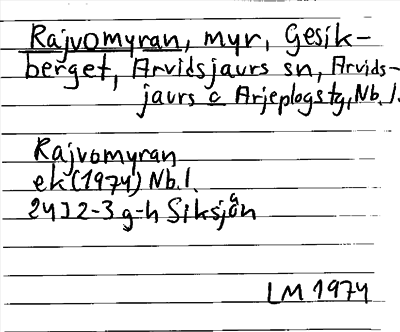 Rajvomyran, myr, Gesik-
berget, Arvidsjaurs sn, Arvids-
jaurs o Arjeplogs tg, Nb. l.
Rajvomyran
ek (1974) Nb. l.
24J 2-3 g-h Siksjån
LM 1974